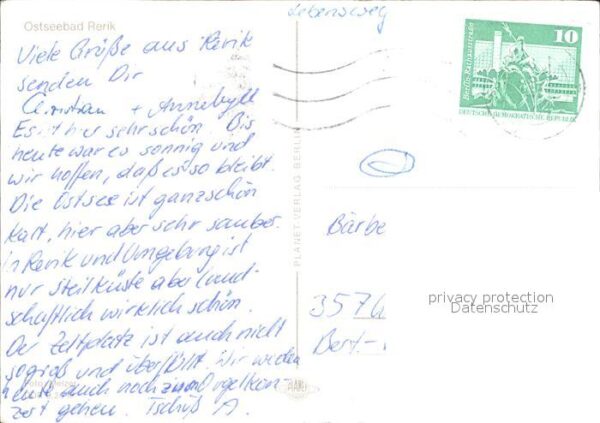 Ostseebad Rerik
Lebensweg
Viele Grüße aus Rerik
senden Dir
Christian + Annesybill
Es ist hier sehr schön. Bis
heute war es sonnig und
wir hoffen, daß es so bleibt.
Die Ostsee ist ganzschön
kalt, hier aber sehr sauber.
in Rerik und Umgebung ist
nur Steilküste aber land-
schaftlich wirklich schön.
Der Zeltplatz ist auch nicht
so groß und überfüllt. Wir werden
heute auch noch zum Orgelkon
zert gehen. Tschüß A.
PLANET-VERLAG BERLIN
10
Berlin, Rathausstraße
DEUTSCHE DEMOKRATISCHE REPUBLIK
Bärbe
357
privacy protection
Datenschutz